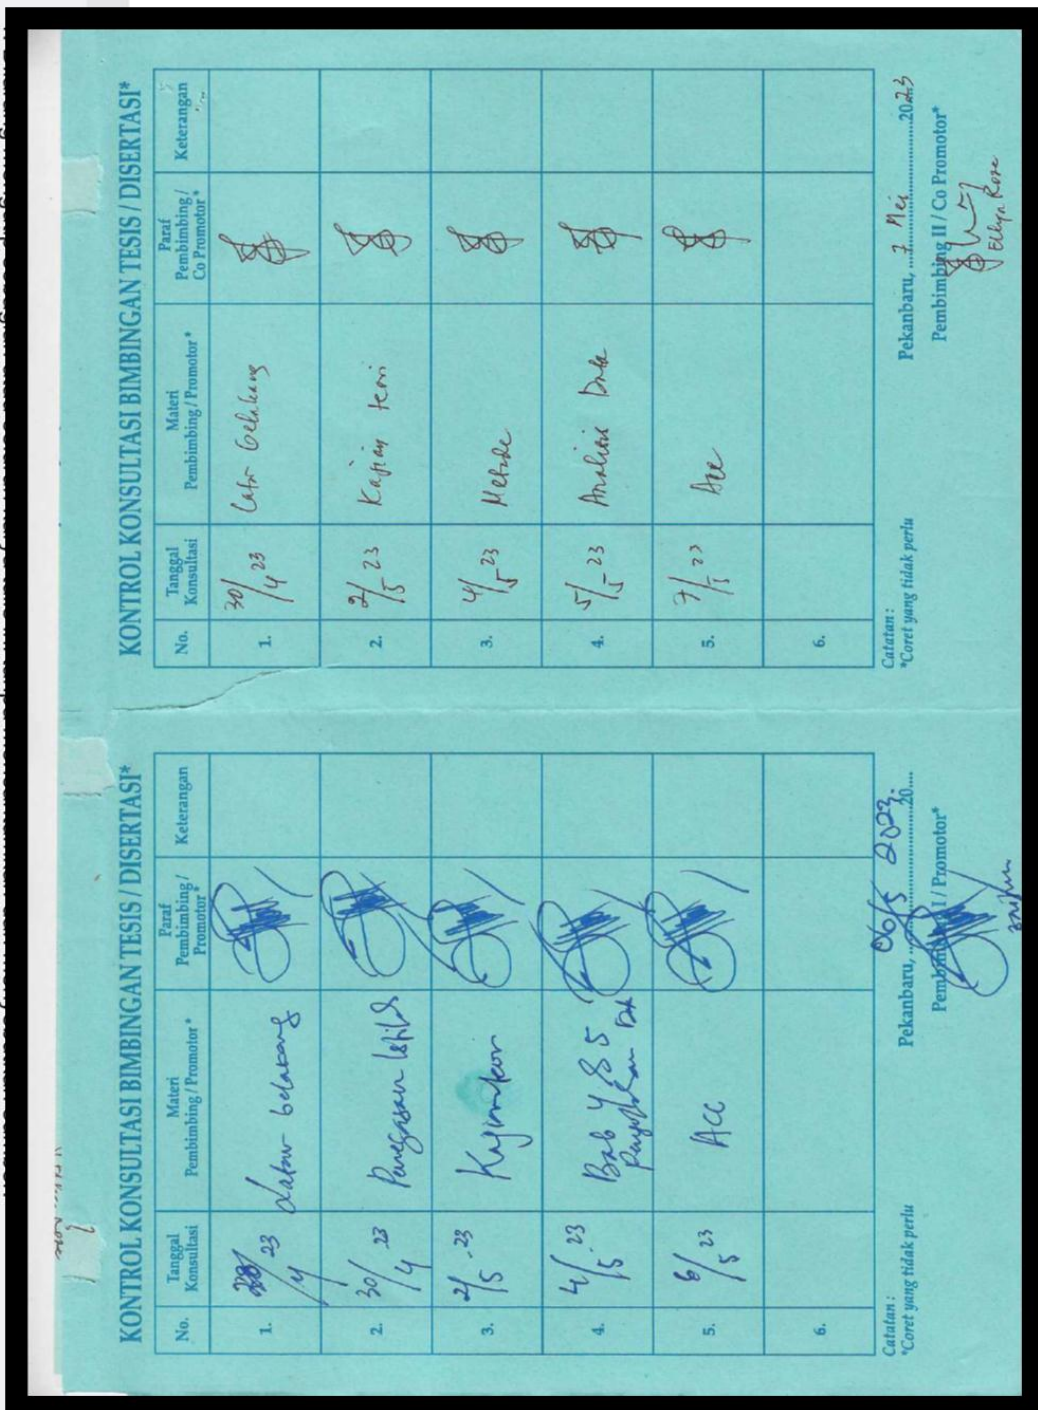 KONTROL KONSULTASI BIMBINGAN TESIS / DISERTASI*
No.
Tanggal
Konsultasi
Materi
Pembimbing / Promotor *
Paraf
Pembimbing /
Promotor*
Keterangan
1.
/4 23
Latar belakang
2.
30/4 23
Penegasan Istilah
3.
2/5 - 23
4.
4/5 - 23
Bab 4 & 5
5.
6/5 23
ACC
6.
Catatan :
*Coret yang tidak perlu
Pekanbaru, 06/5 2023. 20....
Pembimbing I / Promotor*
KONTROL KONSULTASI BIMBINGAN TESIS / DISERTASI*
No.
Tanggal
Konsultasi
Materi
Pembimbing / Promotor *
Paraf
Pembimbing /
Co Promotor *
Keterangan
1.
30/4 23
Latar belakang
2.
2/5 23
Kajian teori
3.
4/5 23
Metode
4.
5/5 - 23
Analisis Data
5.
7/5 23
Acc
6.
Catatan :
*Coret yang tidak perlu
Pekanbaru, 7 Mei 2023
Pembimbing II / Co Promotor*
Ellya Roza